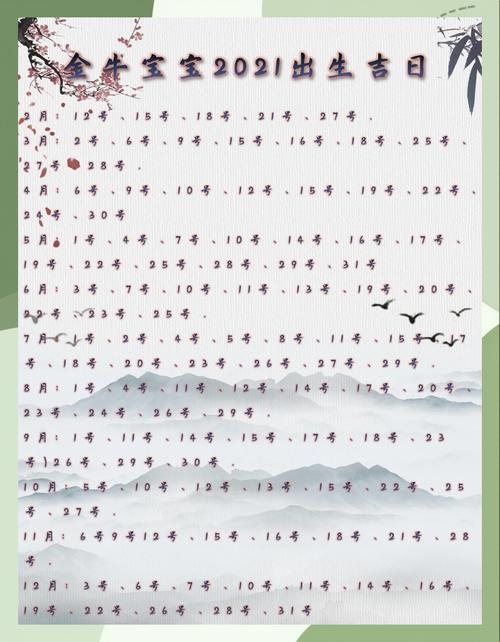 金牛宝宝2021出生吉日
2月：12号、15号、18号、21号、27号.
3月：2号、6号、9号、15号、16号、18号、25号、
27号、28号.
4月：6号、9号、10号、12号、15号、19号、22号、
24号、30号
5月：1号、4号、7号、10号、14号、16号、17号、
19号、22号、25号、28号、29号、31号
6月：3号、7号、10号、11号、13号、19号、20号、
22号、23号、25号.
7月：号、2号、4号、5号、8号、11号、15号、17
号、18号、20号、23号、26号、27号、29号.
8月：1号、4号、11号、12号、14号、17号、20号、
23号、24号、26号、29号.
9月：1号、11号、14号、15号、17号、18号、23
号)26号、29号、30号.
10月：5号、10号、12号、13号、15号、22号、25
号、27号.
11月：6号9号12号、15号、16号、18号、21号、28
号.
12月：3号、6号、7号、10号、11号、14号、16号、
19号、22号、26号、28号、31号